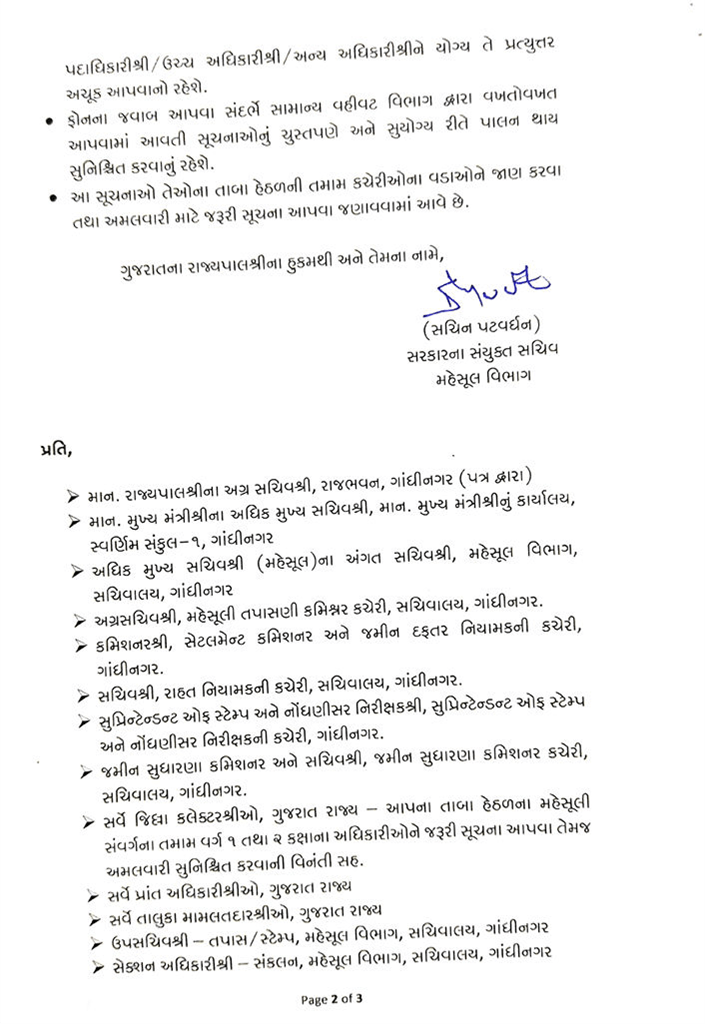 પદાધિકારીશ્રી/ઉચ્ચ અધિકારીશ્રી/અન્ય અધિકારીશ્રીને યોગ્ય તે પ્રત્યુત્તર
અચૂક આપવાનો રહેશે.
• ફોનના જવાબ આપવા સંદર્ભે સામાન્ય વહીવટ વિભાગ દ્વારા વખતોવખત
આપવામાં આવતી સૂચનાઓનું ચુસ્તપણે અને સુયોગ્ય રીતે પાલન થાય
સુનિશ્ચિત કરવાનું રહેશે.
• આ સૂચનાઓ તેઓના તાબા હેઠળની તમામ કચેરીઓના વડાઓને જાણ કરવા
તથા અમલવારી માટે જરૂરી સૂચના આપવા જણાવવામાં આવે છે.
ગુજરાતના રાજ્યપાલશ્રીના હુકમથી અને તેમના નામે,
(સચિન પટવર્ધન)
સરકારના સંયુક્ત સચિવ
મહેસૂલ વિભાગ
પ્રતિ,
➢ માન. રાજ્યપાલશ્રીના અગ્ર સચિવશ્રી, રાજભવન, ગાંધીનગર (પત્ર દ્વારા)
➢ માન. મુખ્ય મંત્રીશ્રીના અધિક મુખ્ય સચિવશ્રી, માન. મુખ્ય મંત્રીશ્રીનું કાર્યાલય,
સ્વર્ણિમ સંકુલ-૧, ગાંધીનગર
➢ અધિક મુખ્ય સચિવશ્રી (મહેસૂલ)ના અંગત સચિવશ્રી, મહેસૂલ વિભાગ,
સચિવાલય, ગાંધીનગર
➢ અગ્રસચિવશ્રી, મહેસૂલી તપાસણી કમિશ્નર કચેરી, સચિવાલય, ગાંધીનગર.
➢ કમિશનરશ્રી, સેટલમેન્ટ કમિશનર અને જમીન દફતર નિયામકની કચેરી,
ગાંધીનગર.
➢ સચિવશ્રી, રાહત નિયામકની કચેરી, સચિવાલય, ગાંધીનગર.
➢ સુપ્રિન્ટેન્ડન્ટ ઓફ સ્ટેમ્પ અને નોંધણીસર નિરીક્ષકશ્રી, સુપ્રિન્ટેન્ડન્ટ ઓફ સ્ટેમ્પ
અને નોંધણીસર નિરીક્ષકની કચેરી, ગાંધીનગર.
➢ જમીન સુધારણા કમિશનર અને સચિવશ્રી, જમીન સુધારણા કમિશનર કચેરી,
સચિવાલય, ગાંધીનગર.
➢ સર્વે જિલ્લા કલેક્ટરશ્રીઓ, ગુજરાત રાજ્ય – આપના તાબા હેઠળના મહેસૂલી
સંવર્ગના તમામ વર્ગ ૧ તથા ૨ કક્ષાના અધિકારીઓને જરૂરી સૂચના આપવા તેમજ
અમલવારી સુનિશ્ચિત કરવાની વિનંતી સહ.
➢ સર્વે પ્રાંત અધિકારીશ્રીઓ, ગુજરાત રાજ્ય
➢ સર્વે તાલુકા મામલતદારશ્રીઓ, ગુજરાત રાજ્ય
➢ ઉપસચિવશ્રી – તપાસ/સ્ટેમ્પ, મહેસૂલ વિભાગ, સચિવાલય, ગાંધીનગર
➢ સેક્શન અધિકારીશ્રી – સંકલન, મહેસૂલ વિભાગ, સચિવાલય, ગાંધીનગર
Page 2 of 3